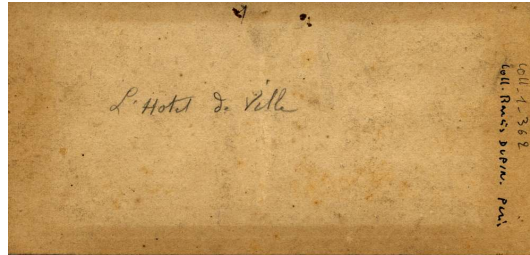 L'Hotel de Ville
Coll-1-362
Coll. Francis DUPIN. Paris